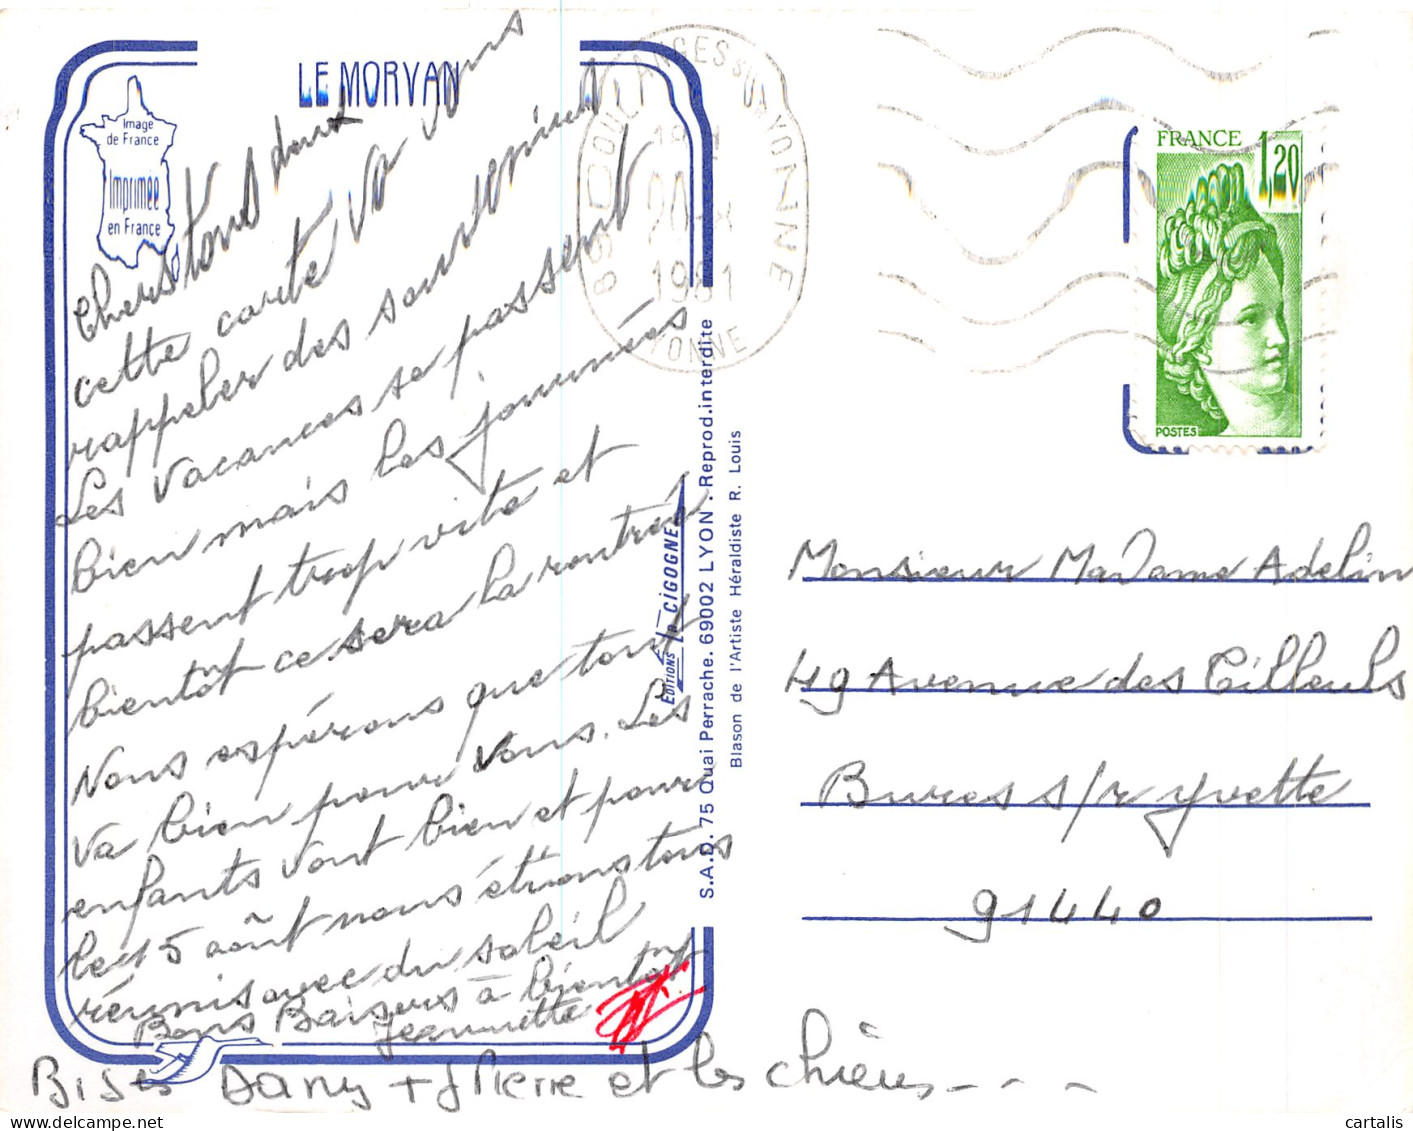 LE MORVAN
Image
de France
Imprimée
en France
Chers Tous deux
cette carte va vous
rappeler des souvenirs
Les vacances se passent
bien mais les journées
passent trop vite et
bientôt ce sera la rentrée
Nous espérons que tout
va bien pour vous. Les
enfants vont bien et pour
le 15 août nous étions tous
réunis avec du soleil
Bons Baisers à bientôt
Jeannette
Bises Dany + J Pierre et les chiens - - -
EDITIONS La CIGOGNE
S.A.D. 75 Quai Perrache. 69002 LYON . Reprod. interdite
Blason de l'Artiste Héraldiste R. Louis
89 COULANGES SUR YONNE
YONNE
1981
FRANCE 1,20
POSTES
Monsieur Madame Adelin
49 Avenue des Tilleuls
Bures s/r yvette
91440
cartalis